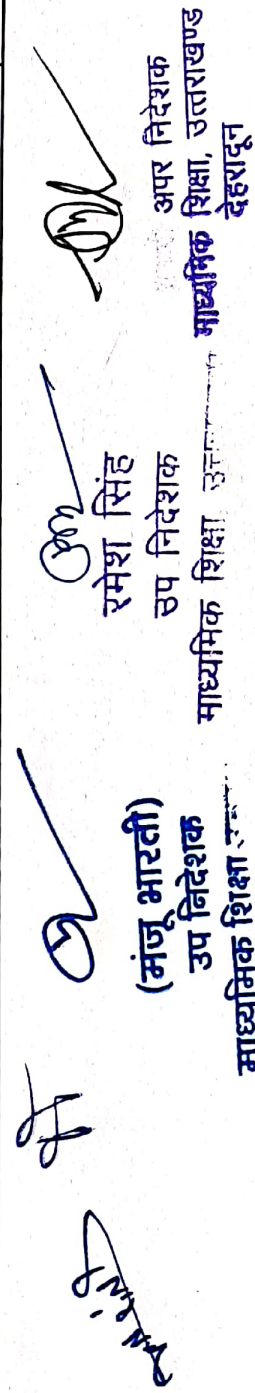 (मंजू भारती)
उप निदेशक
माध्यमिक शिक्षा
रमेश सिंह
उप निदेशक
माध्यमिक शिक्षा
अपर निदेशक
माध्यमिक शिक्षा, उत्तराखण्ड
देहरादून